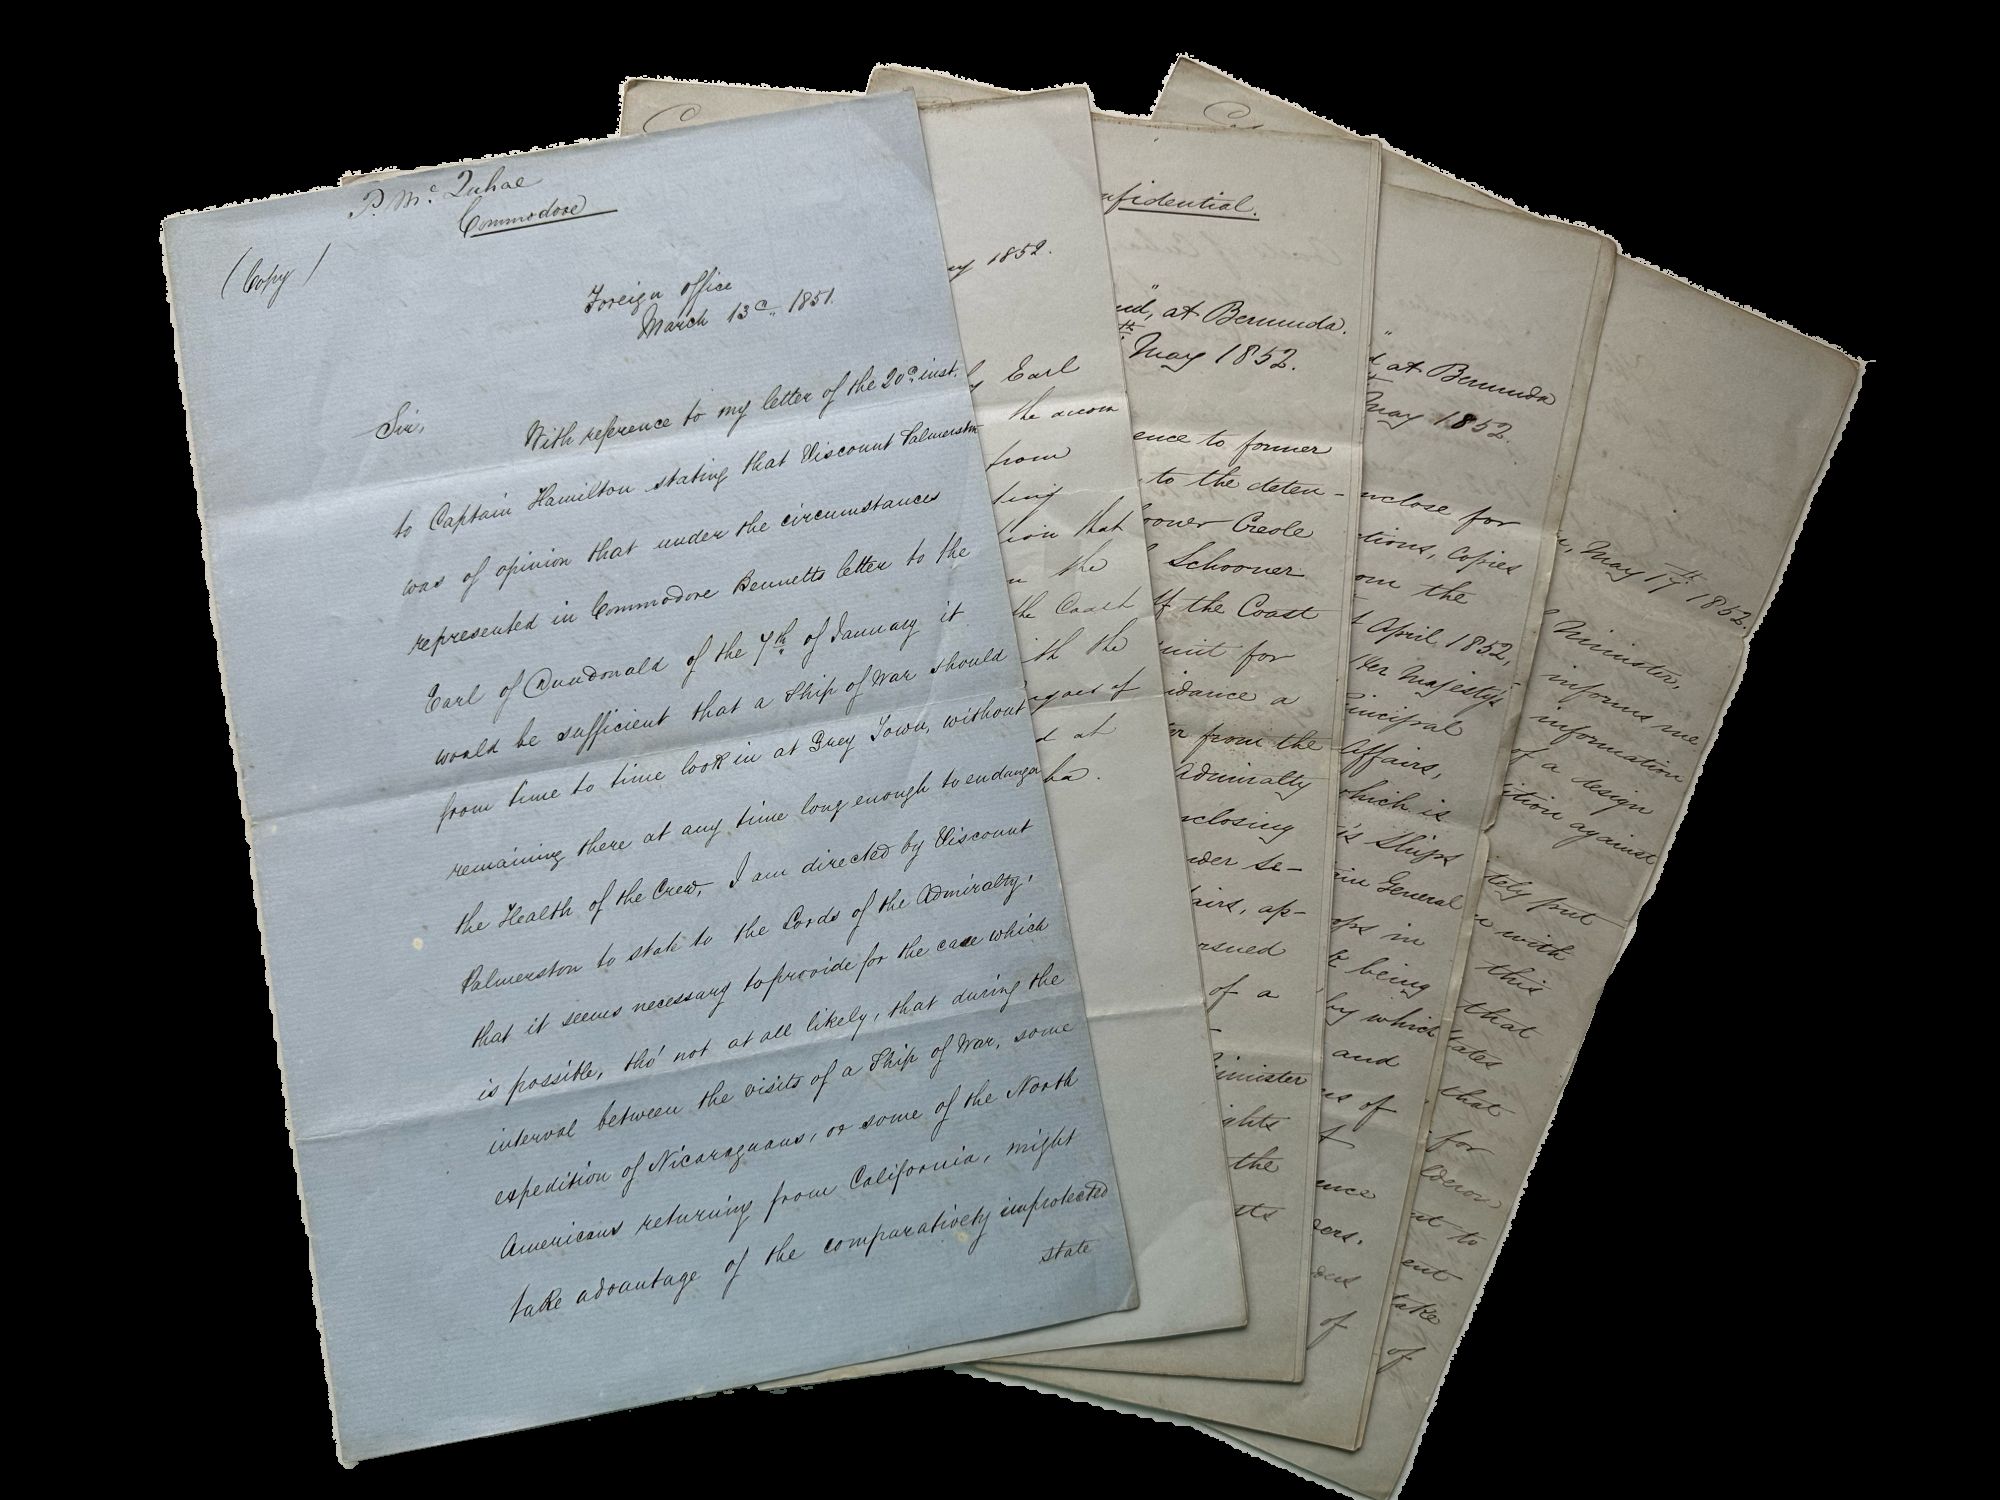 P. Mc. Quhae
Commodore
(Copy)
Foreign Office
March 13d. 1851.
Sir,
With reference to my letter of the 20d. inst.
to Captain Hamilton stating that Viscount Palmerston
was of opinion that under the circumstances
represented in Commodore Bennetts letter to the
Earl of Dundonald of the 7th. of January it
would be sufficient that a Ship of War should
from time to time look in at Grey Town, without
remaining there at any time long enough to endanger
the Health of the Crew, I am directed by Viscount
Palmerston to state to the Lords of the Admiralty,
that it seems necessary to provide for the case which
is possible, tho' not at all likely, that during the
interval between the visits of a Ship of War, some
expedition of Nicaraguans, or some of the North
Americans returning from California, might
take advantage of the comparatively unprotected
state
1852.
Earl
the
from
that
the
the Coast
the
of
at
nfidential.
at Bermuda.
th May 1852.
ence to former
to the deten-
ooner Creole
Schooner
the Coast
for
idance a
from the
Admiralty
nclosing
der Se-
airs, ap-
rsued
of a
inister
ights
the
at Bermuda
May 1852.
nclose for
ctions, Copies
om the
April, 1852,
Her Majesty's
rincipal
Affairs,
which is
Ships
ain General
ops in
being
by which
and
of
ence
of
May 17th. 1852.
Minister,
informs me
information
of a design
ition against
tely put
with
this
that
tates
that
for
lderon
to
ent
take
of